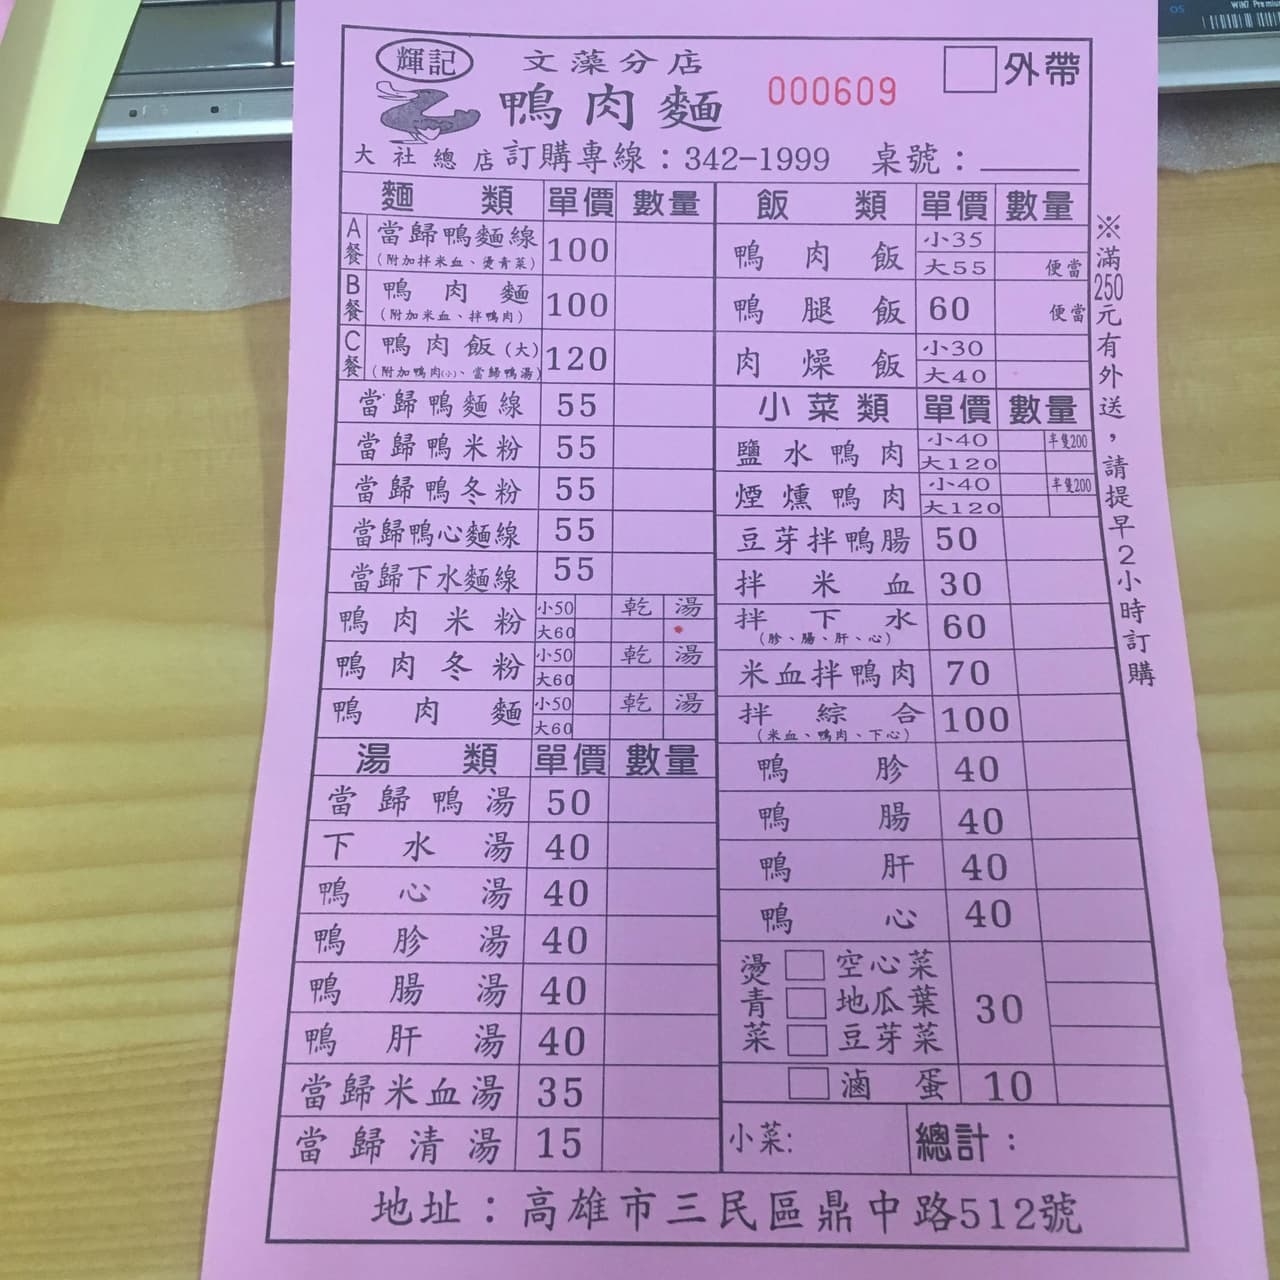 輝記
文藻分店
鴨肉麵
000609
外帶
大社總店訂購專線：342-1999 桌號：
麵類 單價 數量
A餐 當歸鴨麵線 100
（附加拌米血、燙青菜）
B餐 鴨肉麵 100
（附加米血、拌鴨肉）
C餐 鴨肉飯(大) 120
（附加鴨肉(小)、當歸鴨湯）
當歸鴨麵線 55
當歸鴨米粉 55
當歸鴨冬粉 55
當歸鴨心麵線 55
當歸下水麵線 55
鴨肉米粉 小50 乾 湯
大60
鴨肉冬粉 小50 乾 湯
大60
鴨肉麵 小50 乾 湯
大60
湯類 單價 數量
當歸鴨湯 50
下水湯 40
鴨心湯 40
鴨胗湯 40
鴨腸湯 40
鴨肝湯 40
當歸米血湯 35
當歸清湯 15
飯類 單價 數量
鴨肉飯 小35
大55 便當
鴨腿飯 60 便當
肉燥飯 小30
大40
小菜類 單價 數量
鹽水鴨肉 小40 半隻200
大120
煙燻鴨肉 小40 半隻200
大120
豆芽拌鴨腸 50
拌米血 30
拌下水 60
（胗、腸、肝、心）
米血拌鴨肉 70
拌綜合 100
（米血、鴨肉、下心）
鴨胗 40
鴨腸 40
鴨肝 40
鴨心 40
燙青菜 空心菜 30
地瓜葉
豆芽菜
滷蛋 10
小菜: 總計：
※滿250元有外送，請提早2小時訂購
地址：高雄市三民區鼎中路512號